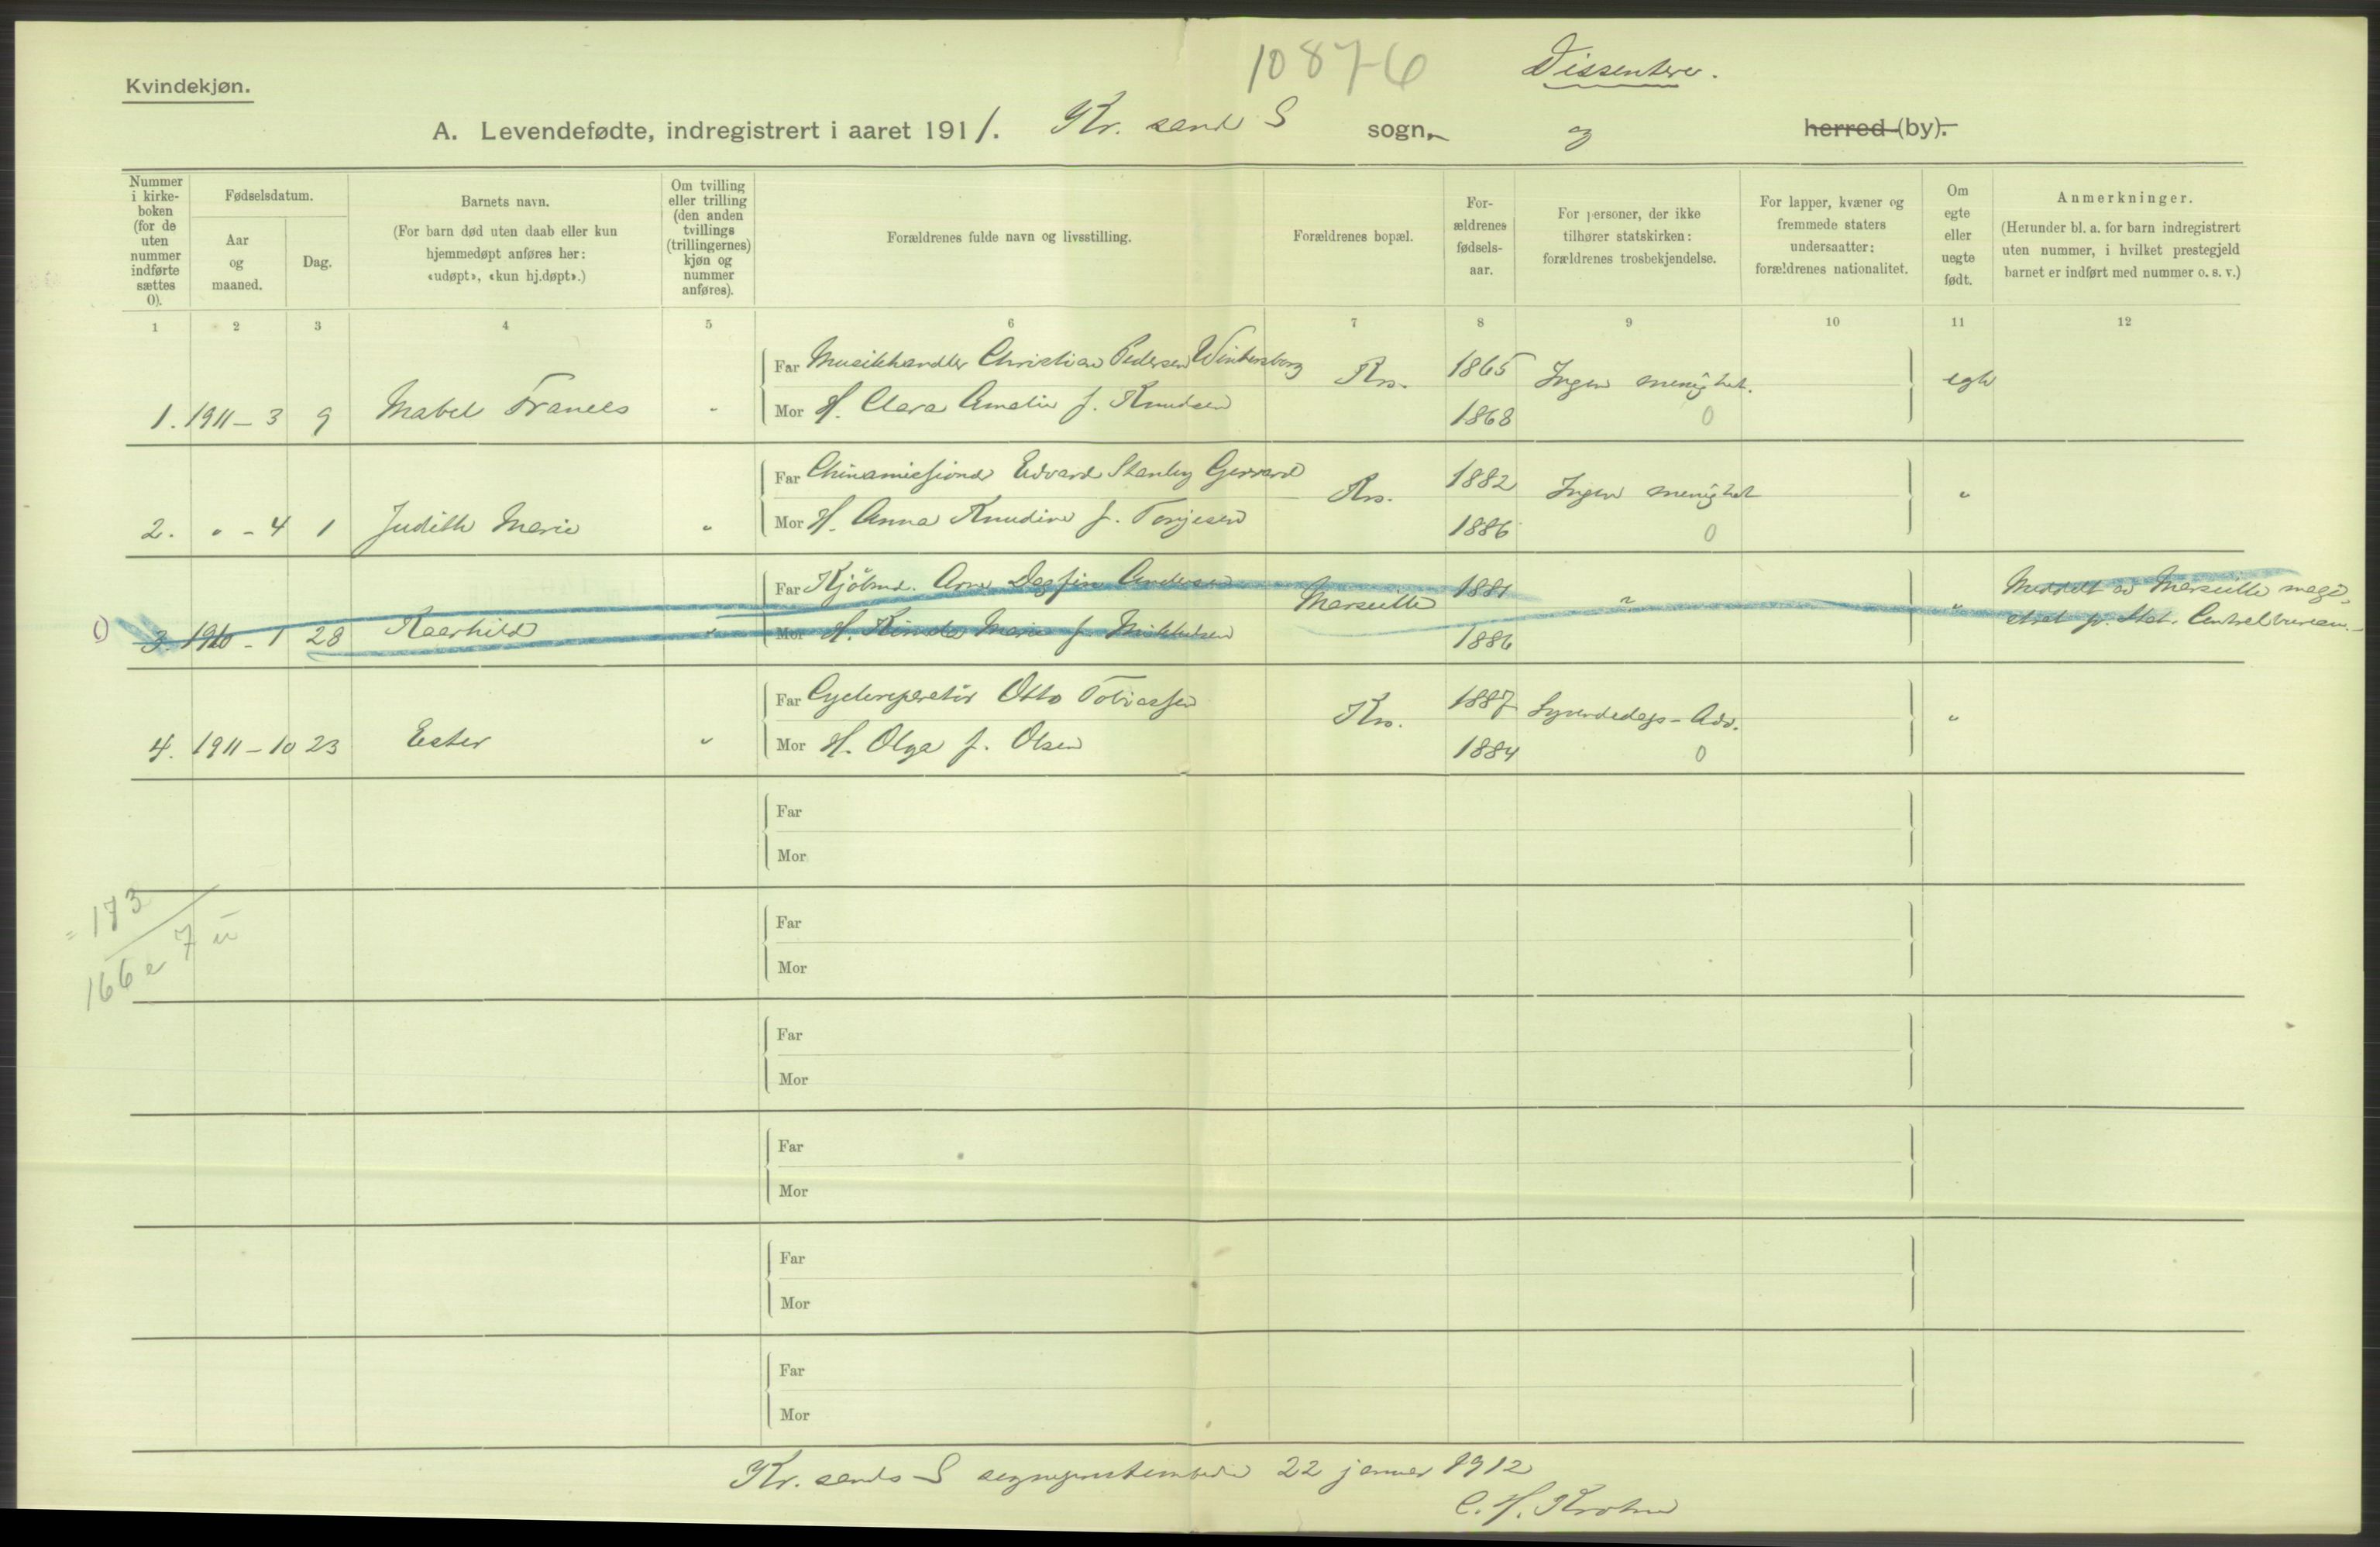 10876
Dissentere.
Kvindekjøn.
A. Levendefødte, indregistrert i aaret 1911. Kr. sand S sogn, og herred (by).
Nummer i kirke-boken (for de uten nummer indførte sættes 0).
Fødselsdatum.
Aar og maaned.
Dag.
Barnets navn.
(For barn død uten daab eller kun hjemmedøpt anføres her: «udøpt», «kun hj.døpt».)
Om tvilling eller trilling (den anden tvillings (trillingernes) kjøn og nummer anføres).
Forældrenes fulde navn og livsstilling.
Forældrenes bopæl.
For-ældrenes fødsels-aar.
For personer, der ikke tilhører statskirken: forældrenes trosbekjendelse.
For lapper, kvæner og fremmede staters undersaatter: forældrenes nationalitet.
Om egte eller uegte født.
Anmerkninger.
(Herunder bl. a. for barn indregistrert uten nummer, i hvilket prestegjeld barnet er indført med nummer o. s. v.)
1 2 3 4 5 6 7 8 9 10 11 12
Far Musikhandler Christian Pedersen Wintersborg Krs. 1865 Ingen menighet. egte
1. 1911 – 3 9 Mabel Frances " Mor H. Clara Amalie f. Knudsen 1868 0
Far Chinamissionær Edvard Stanley Gerrard Krs. 1882 Ingen menighet "
2. " – 4 1 Judith Marie " Mor H. Anna Knudine f. Tonjesen 1886 0
Far Kjøbmd. Arne Dagfin Andersen Marseille 1881 " " Meddelt av Marseille magi-
3. 1910 – 1 28 " Mor H. Marie f. Mikkelsen 1886 strat p. Stat. Centralbureau.
Far Cyclereparatør Otto Tobiassen Krs. 1887 Syvendedags-Adv. "
4. 1911 – 10 23 Ester " Mor H. Olga f. Olsen 1884 0
Far
Mor
= 173
166 e 7 u
Far
Mor
Far
Mor
Far
Mor
Far
Mor
Far
Mor
Kr. sands S sogneprestembede 22 januar 1912
C. H. Krohn